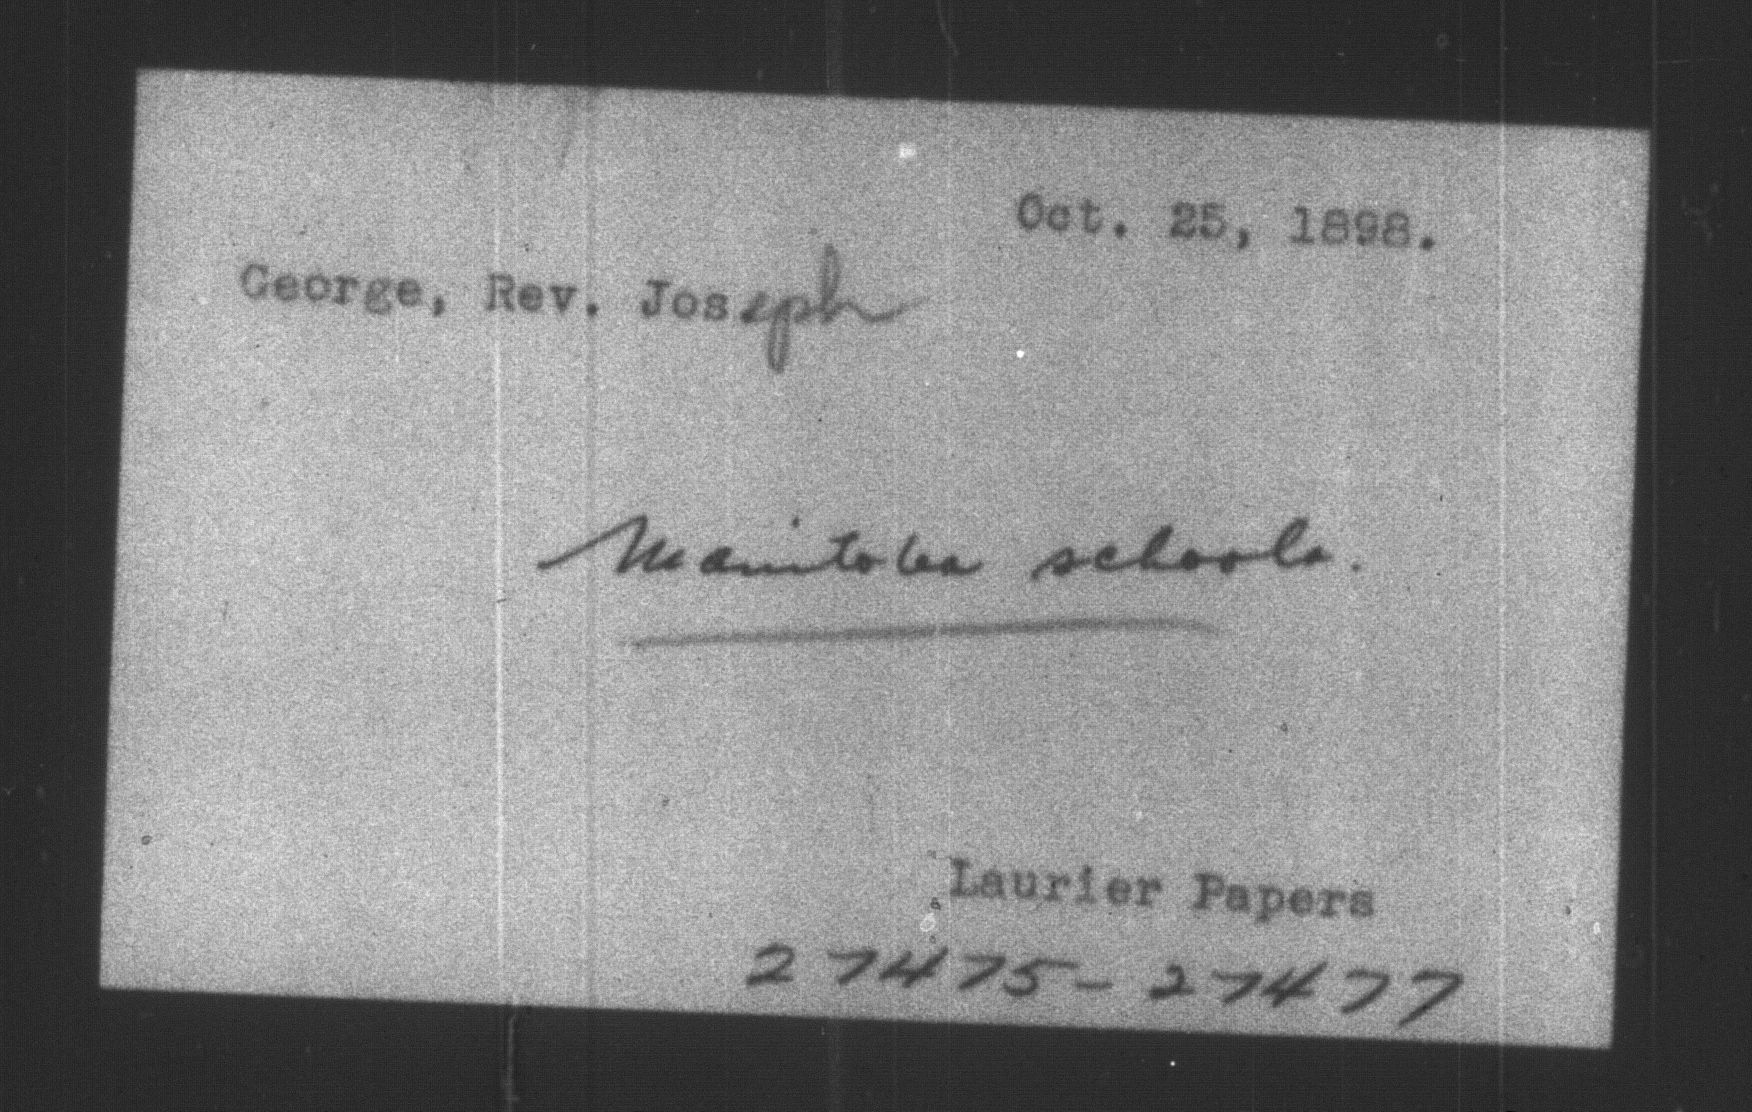 Oct. 25, 1898.
George, Rev. Joseph
Manitoba schools.
Laurier Papers
27475-27477